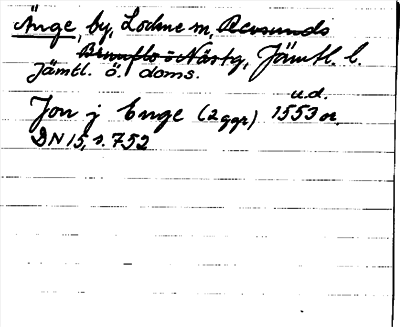 Änge, by, Lockne sn, Revsunds
Brunflo o Näsby, Jämtl. l.
Jämtl. ö. doms.
u.d.
Jon j Enge (2 ggr) 1553 or.
DN 15, s. 752